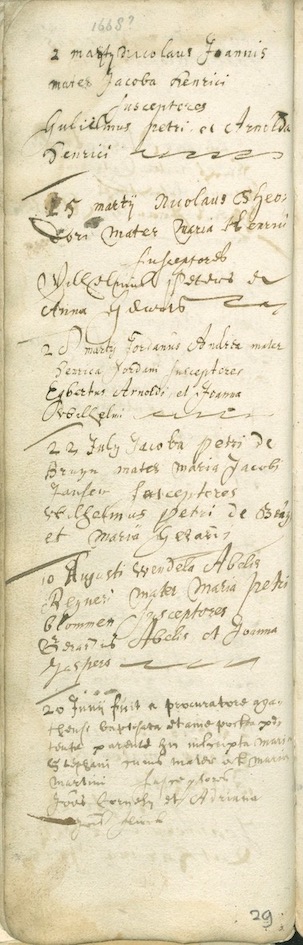 1668?
2 martÿ Nicolaus Joannis
mater Jacoba Henrici
susceptores
Gulielmus petri et Arnolda
Henrici
15 martÿ Nicolaus Theo
dori mater maria Henrici
susceptores
Wilhelmus Peters et
Anna
28 martÿ Jordanus Andrea mater
Henrica Jordani susceptores
Egbertus Arnoldi et Joanna
Wilhelmi
22 July Jacoba petri de
Bruyn mater maria Jacobi
Jansen susceptores
Wilhelmus petri de
et maria Gerardi
10 Augusti Wendela Abelis
Reyneri mater maria petri
Blommen susceptores
Gerardus Abelis et Joanna
Jaspers
20 Junÿ fuit a procuratore
baptisata et a me postea
parente hic inscripta maria
Stephani cuius mater est maria
martini susceptores
Joës Cornely et Adriana
29